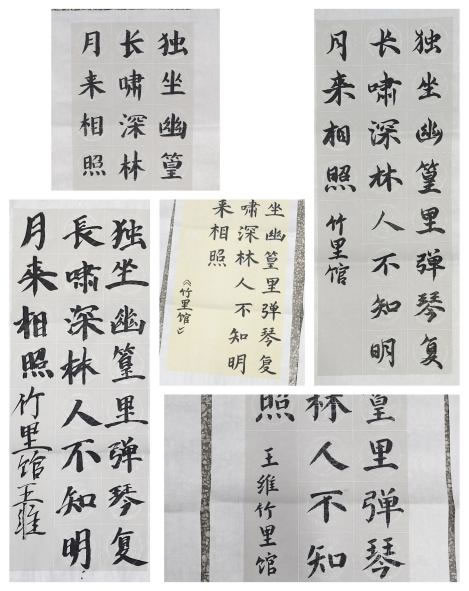 独坐幽篁
长啸深林
月来相照
独坐幽篁里弹琴复
长啸深林人不知明
月来相照 竹里馆
独坐幽篁里弹琴复
長啸深林人不知明
月来相照 竹里馆王维
坐幽篁里弹琴复
啸深林人不知明
来相照
《竹里馆》
篁里弹琴
林人不知
照 王维竹里馆